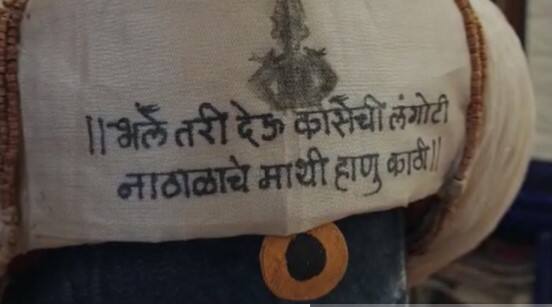 ||भलें तरी देऊ कासेंची लंगोटी
नाठाळाचे माथी हाणु काठी||